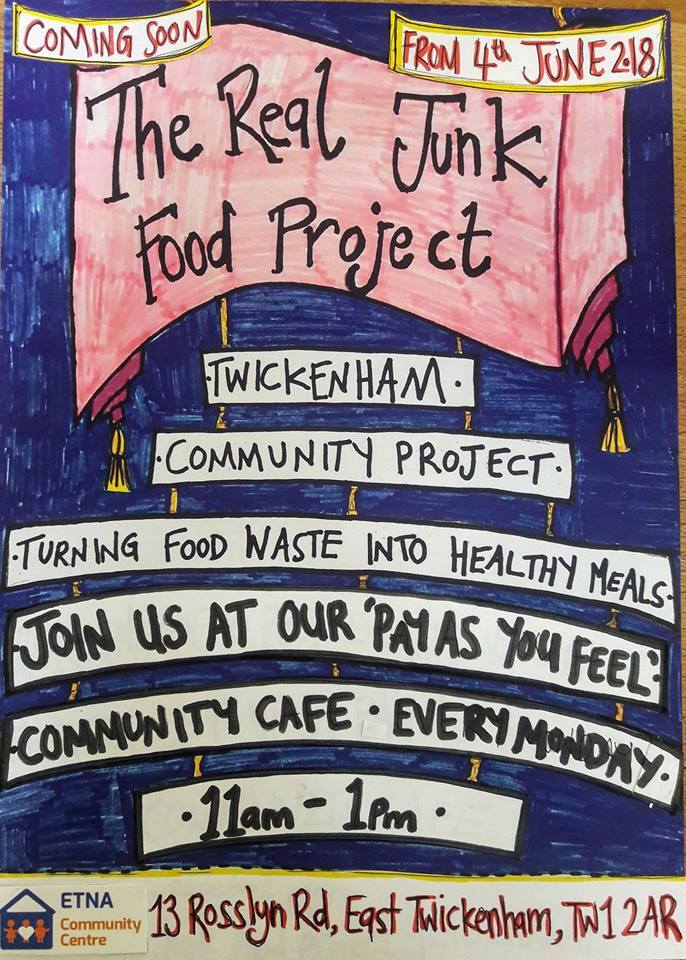 COMING SOON
FROM 4th JUNE 2018
The Real Junk
Food Project
·TWICKENHAM·
·COMMUNITY PROJECT·
·TURNING FOOD WASTE INTO HEALTHY MEALS·
·JOIN US AT OUR 'PAY AS YOU FEEL'·
·COMMUNITY CAFE · EVERY MONDAY·
·11am - 1pm·
ETNA
Community
Centre
13 Rosslyn Rd, East Twickenham, TW1 2AR